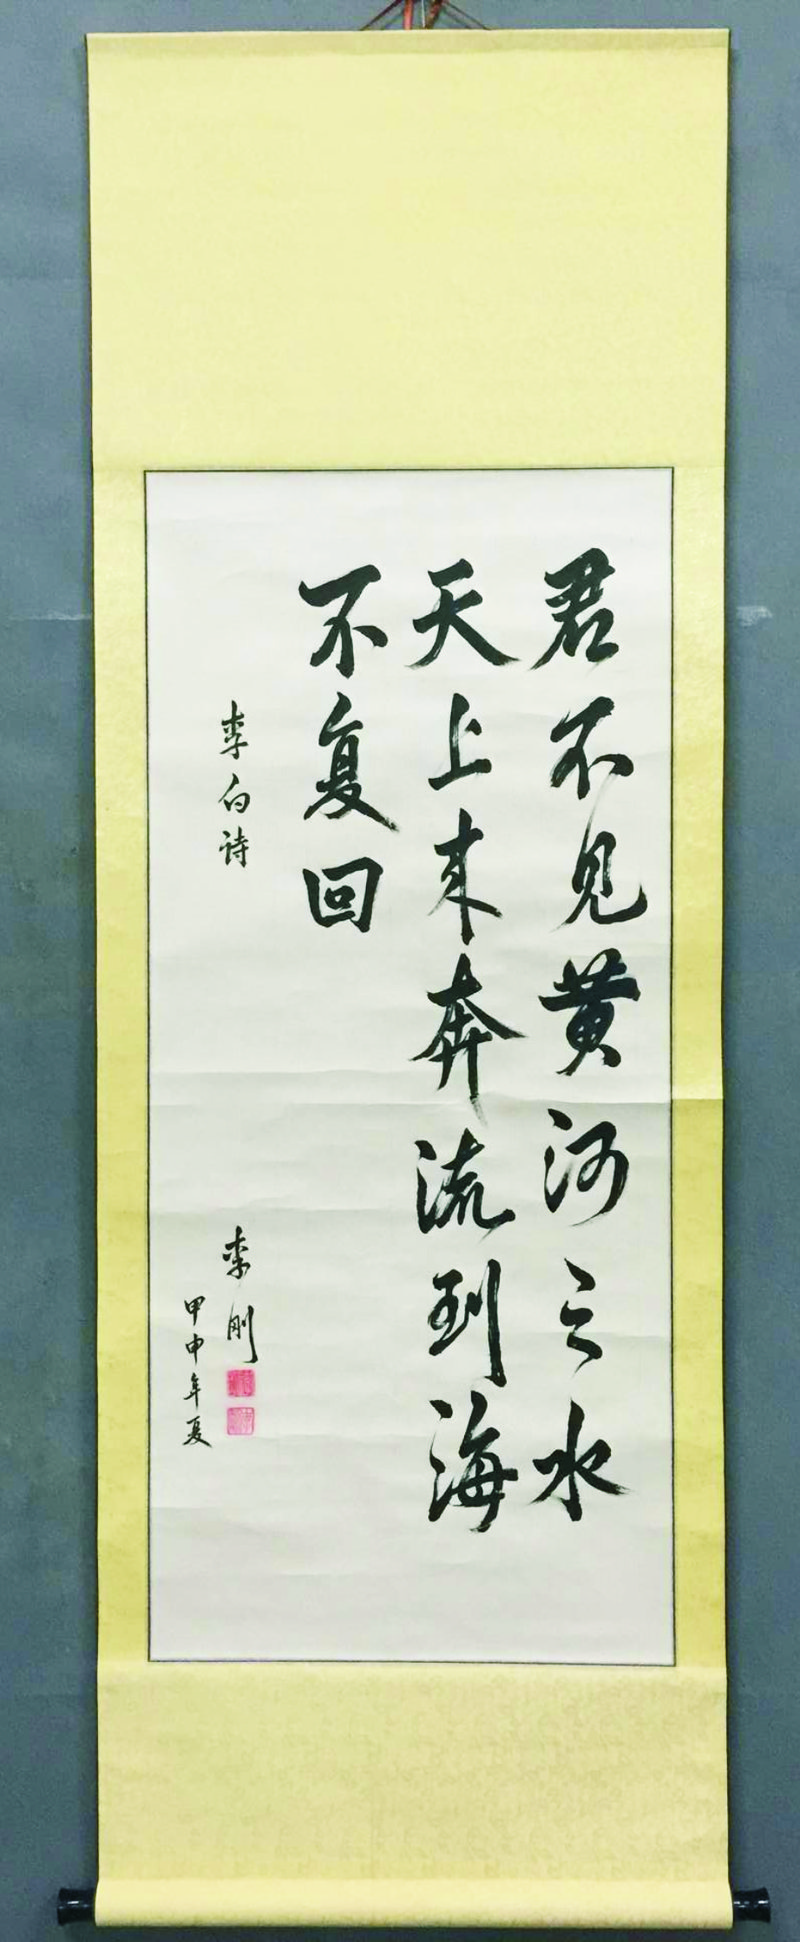 君不见黄河之水
天上来奔流到海
不复回
李白诗
李刚
甲申年夏